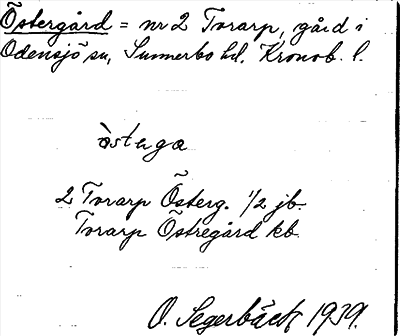 Östergård = nr 2 Torarp, gård i
Odensjö sn, Sunnerbo hd. Kronob. l.
östega
2 Torarp Österg. 1/2 jb.
Torarp Östregård kb.
O. Segerbäck 1939.